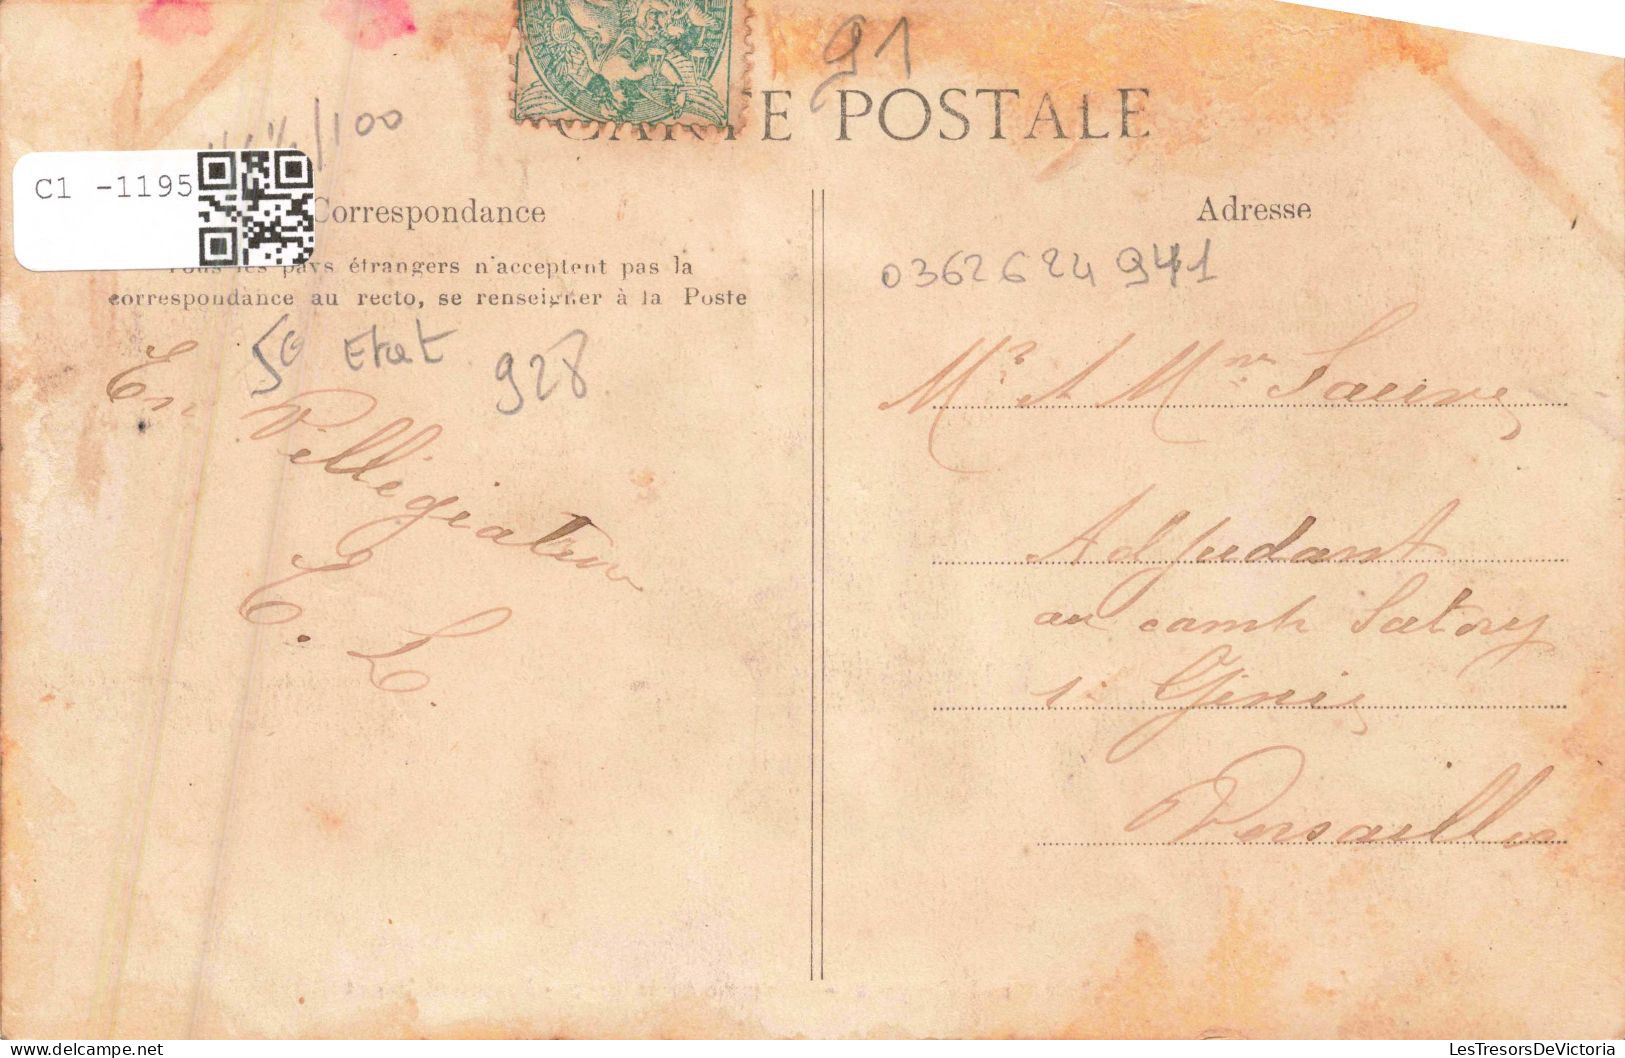 91
CARTE POSTALE
/100
C1 -1195
Correspondance
Tous les pays étrangers n'acceptent pas la
correspondance au recto, se renseigner à la Poste
50 Etat 928
En Villégiature
C. L.
Adresse
0362624941
Mr et Mme Sauve
Adjudant
au camp Satory
1r Génie
Versailles
LesTresorsDeVictoria